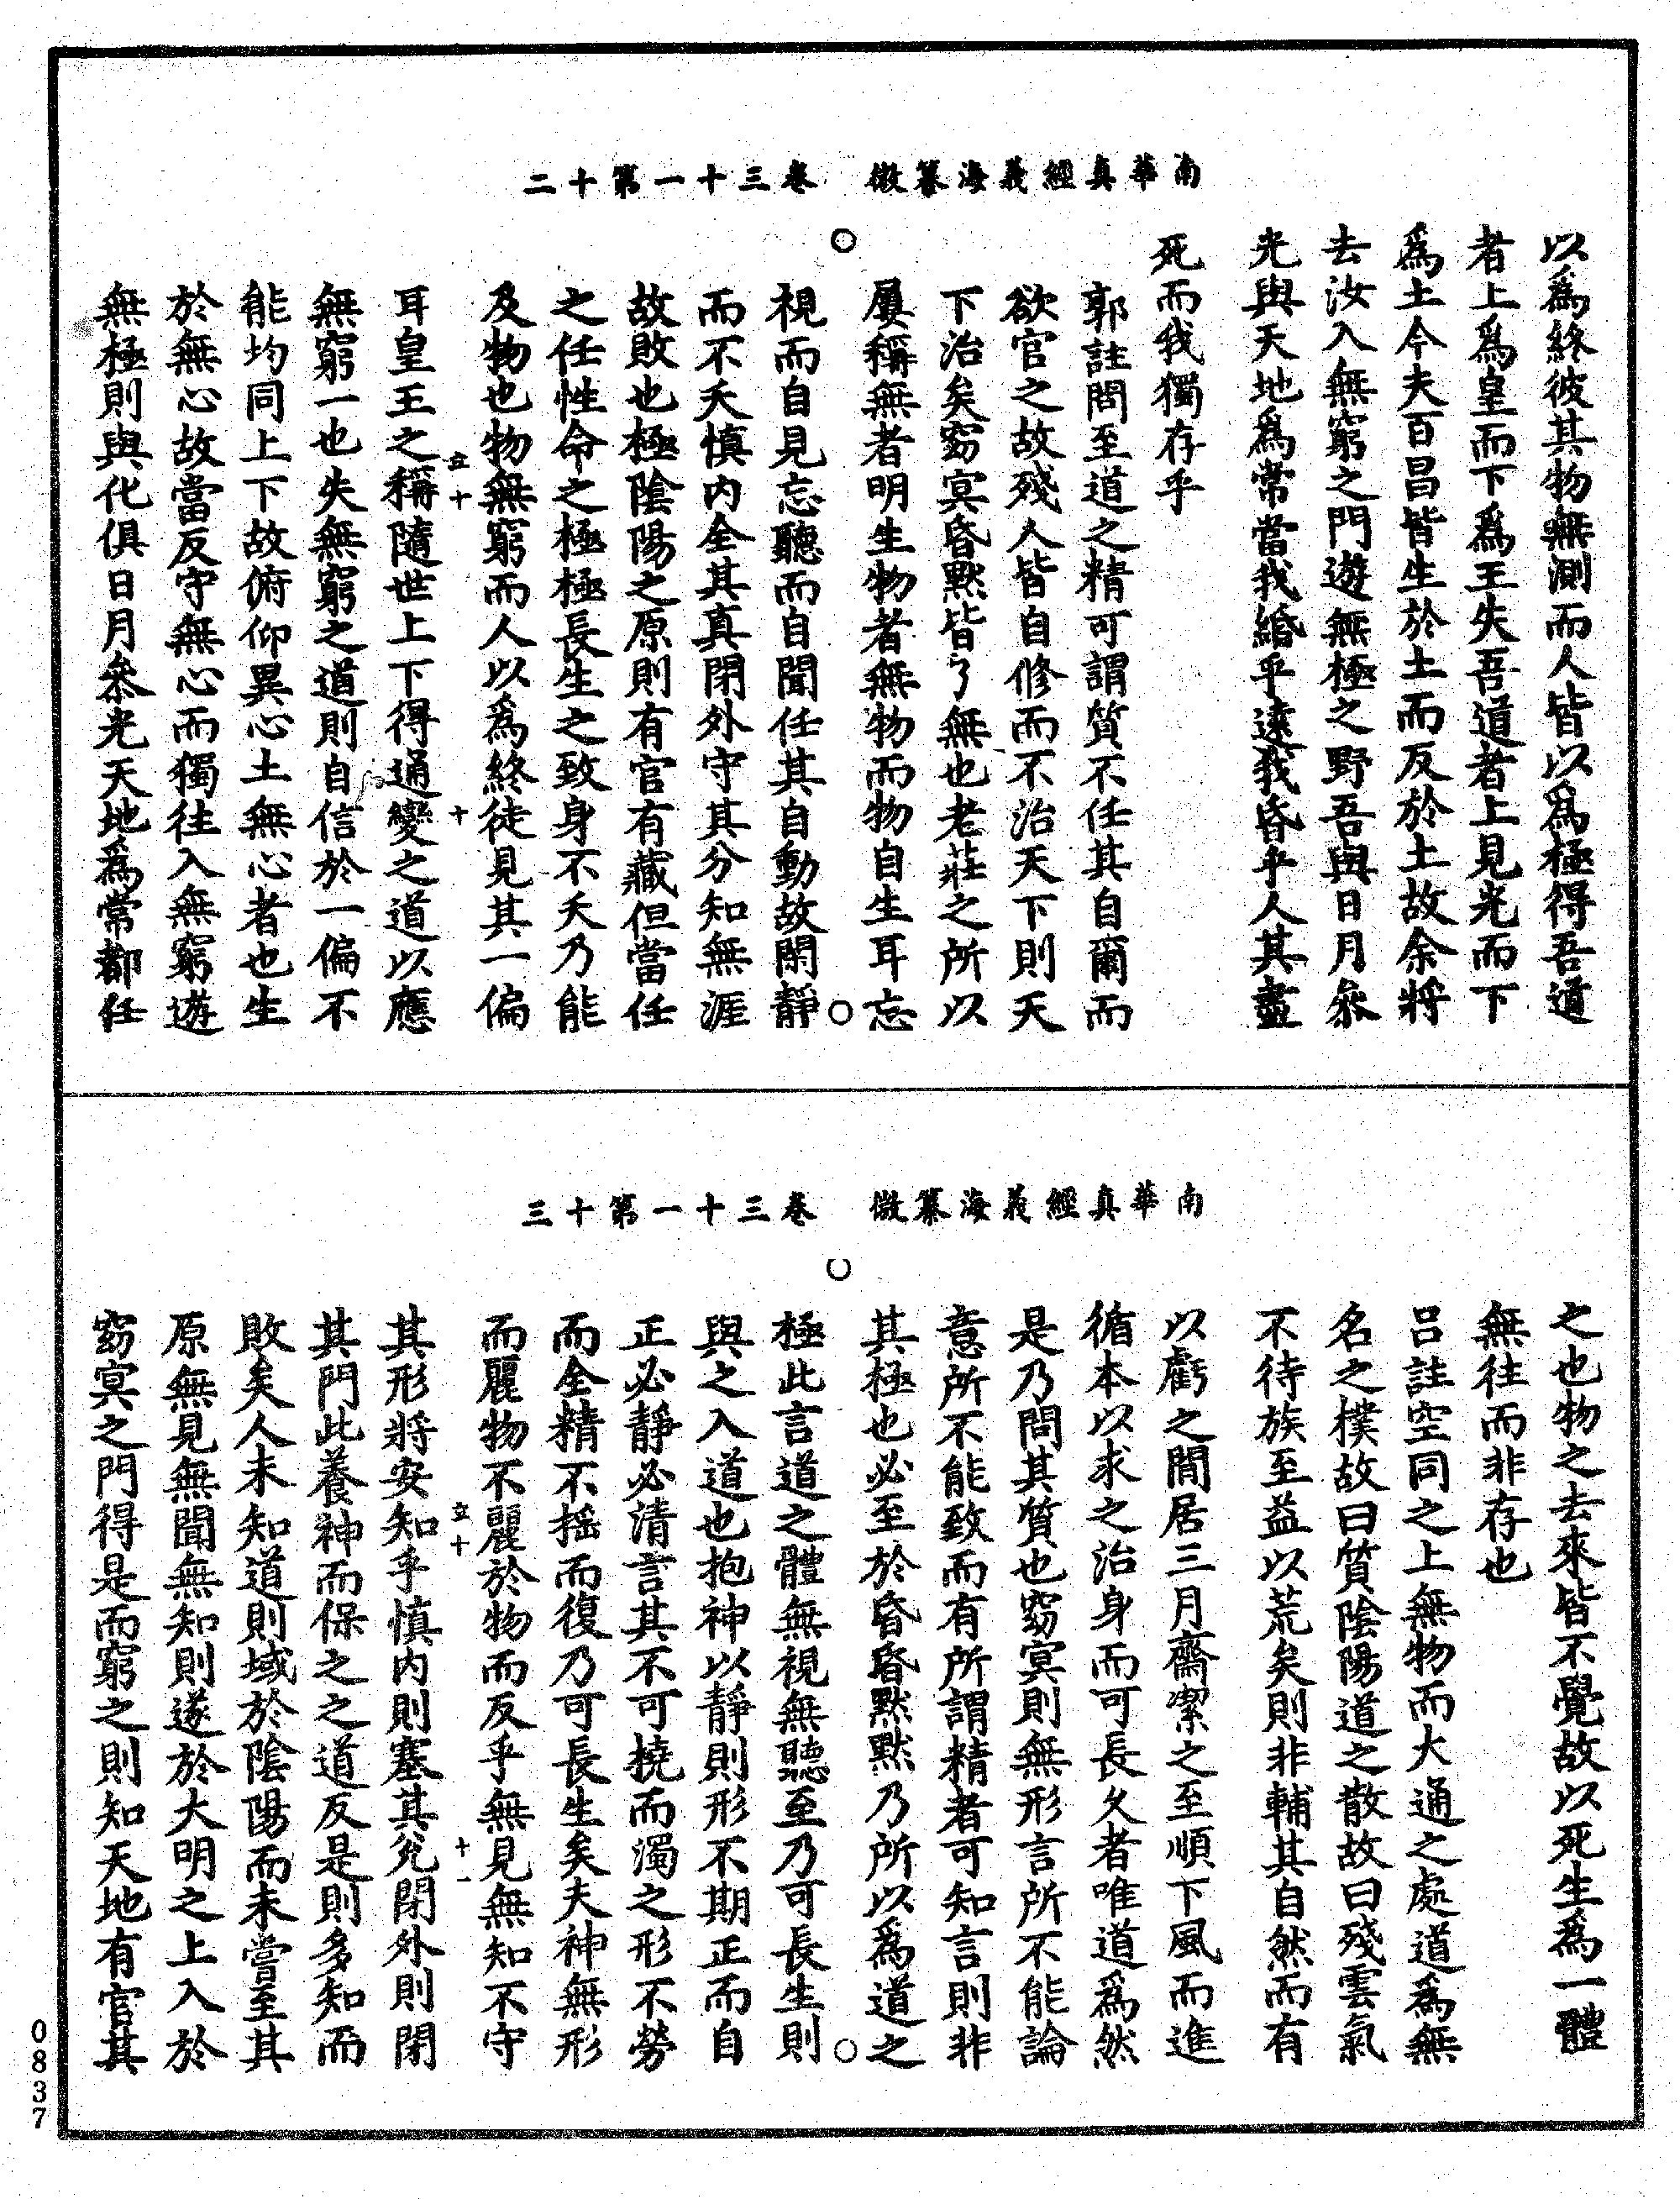 南華真經義海纂微　卷三十一第十二
以爲終彼其物無測而人皆以爲極得吾道
者上爲皇而下爲王失吾道者上見光而下
爲土今夫百昌皆生於土而反於土故余將
去汝入無窮之門遊無極之野吾與日月參
光與天地爲常當我緡乎遠我昏乎人其盡
死而我獨存乎
郭註問至道之精可謂質不任其自爾而
欲官之故殘人皆自修而不治天下則天
下治矣窈冥昏默皆了無也老莊之所以
屢稱無者明生物者無物而物自生耳忘
視而自見忘聽而自聞任其自動故閑靜
而不夭慎內全其真閉外守其分知無涯
故敗也極陰陽之原則有官有藏但當任
之任性命之極極長生之致身不夭乃能
及物也物無窮而人以爲終徒見其一偏
立十
十
耳皇王之稱隨世上下得通變之道以應
無窮一也失無窮之道則自信於一偏不
能均同上下故俯仰異心土無心者也生
於無心故當反守無心而獨往入無窮遊
無極則與化俱日月參光天地爲常都任
南華真經義海纂微　卷三十一第十三
之也物之去來皆不覺故以死生爲一體
無往而非存也
呂註空同之上無物而大通之處道爲無
名之樸故曰質陰陽道之散故曰殘雲氣
不待族至益以荒矣則非輔其自然而有
以虧之閒居三月齋潔之至順下風而進
循本以求之治身而可長久者唯道爲然
是乃問其質也窈冥則無形言所不能論
意所不能致而有所謂精者可知言則非
其極也必至於昏昏默默乃所以爲道之
極此言道之體無視無聽至乃可長生則
與之入道也抱神以靜則形不期正而自
正必靜必清言其不可撓而濁之形不勞
而全精不搖而復乃可長生矣夫神無形
而麗物不麗於物而反乎無見無知不守
立十
十一
其形將安知乎慎內則塞其兌閉外則閉
其門此養神而保之之道反是則多知而
敗矣人未知道則域於陰陽而未嘗至其
原無見無聞無知則遂於大明之上入於
窈冥之門得是而窮之則知天地有官其
0837